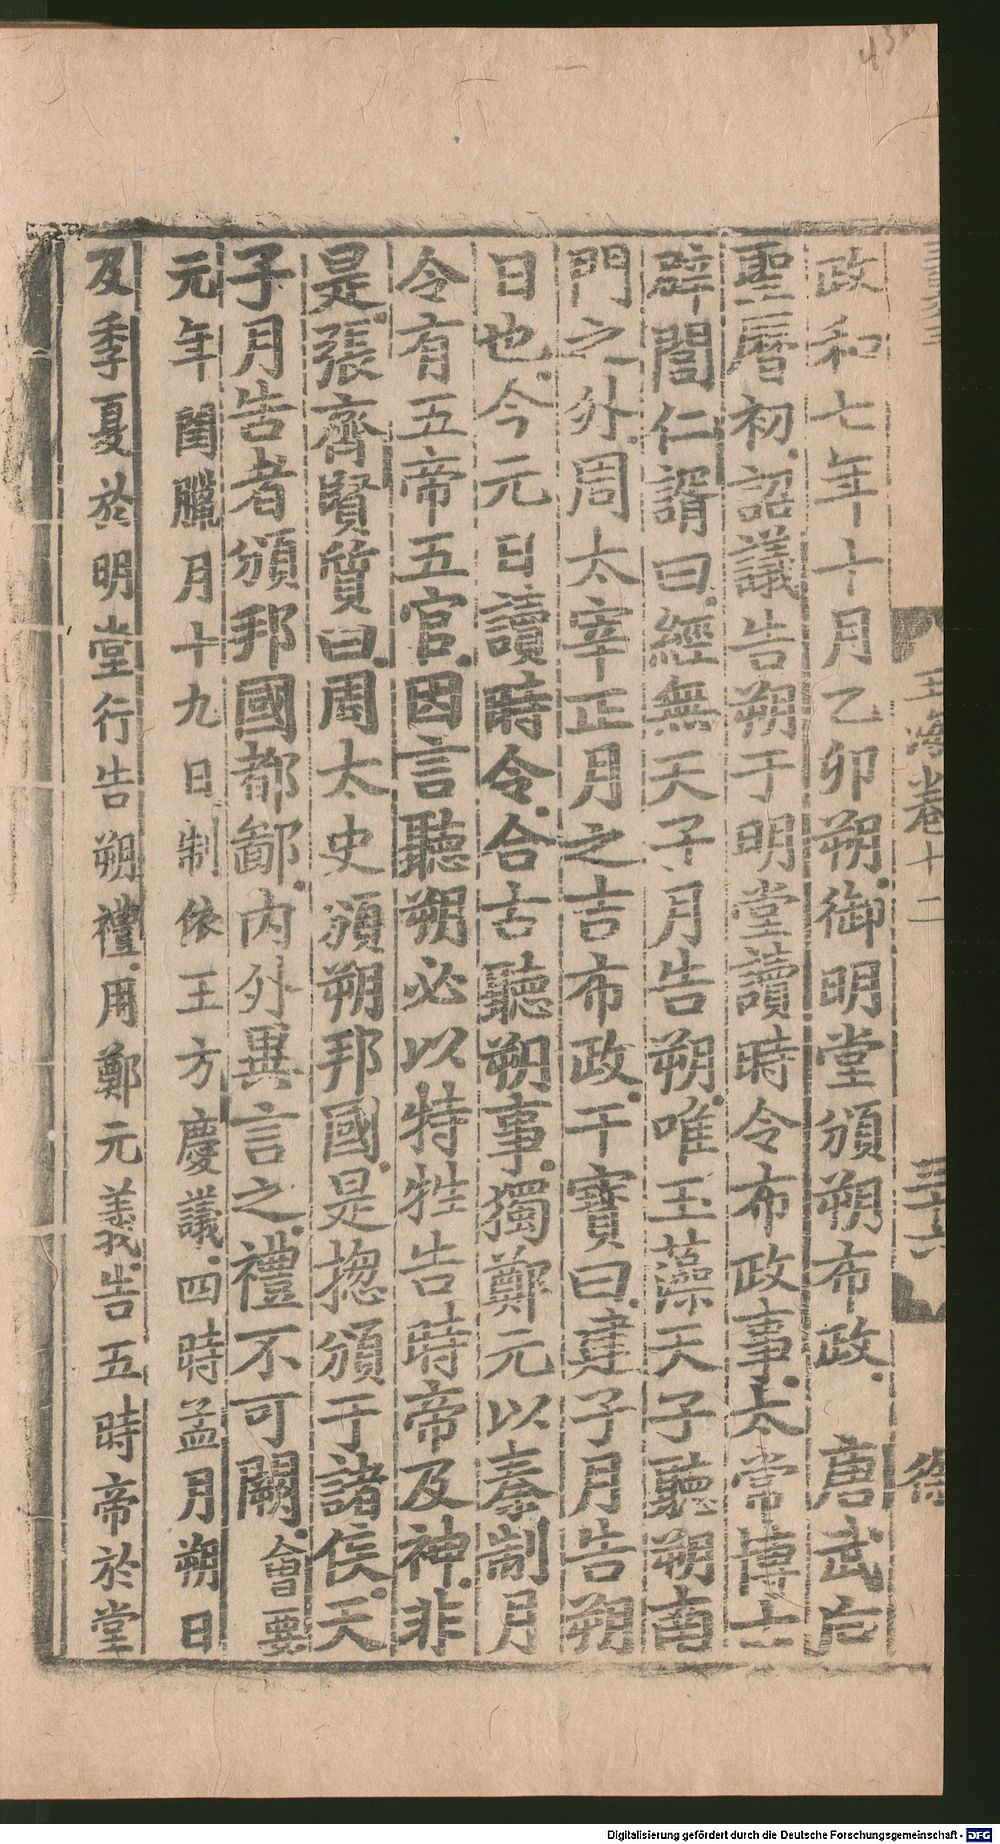 政和七年十月乙卯朔御明堂頒朔布政 唐武后
聖曆初詔議告朔于明堂讀時令布政事太常博士
辟閭仁諝曰經無天子月告朔唯玉藻天子聽朔南
門之外周太宰正月之吉布政干寶曰建子月告朔
日也今元日讀時令合古聽朔事獨鄭元以秦制月
令有五帝五官因言聽朔必以特牲告時帝及神非
是張齊賢質曰周太史頒朔邦國是揔頒于諸侯天
子月告者頒邦國都鄙內外異言之禮不可闕會要
元年閏臘月十九日制依王方慶議四時孟月朔日
及季夏於明堂行告朔禮用鄭元義告五時帝於堂
玉海卷十二
三十六
徐
Digitalisierung gefördert durch die Deutsche Forschungsgemeinschaft - DFG